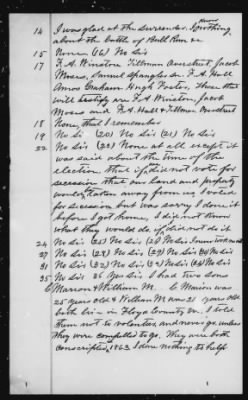 14 I was glad at the surrender. I know nothing
about the battle of Bull Run &c
15 None (16) No Sir
17 F. A. Winston Tillman Overstreet Jacob
Moses, Samuel Spangler Sr. F. A. Hall
Amos Graham Hugh Foster, those that
will testify are F. A. Winston, Jacob
Moses and F. A. Hall & Tillman Overstreet
18 None, that I remember
19 No Sir (20) No Sir (21) No Sir
22 No Sir (23) None at all except it
was said about the time of the
election, that if I did not vote for
secession that our land and property
would be taken away from us, I voted
for secession but was sorry I done it
before I got home, I did not know
what they would do, if I did not do it
24 No Sir (25) No Sir (26) No Sir I never was
27 No Sir (28) No Sir (29) No Sir (30) No Sir
31 No Sir (32) No Sir (33) No Sir (34) No Sir
35 No Sir 36 Yes Sir I had two sons
C Marion & William M. C Marion was
25 year old & William M was 21 years old
both live in Floyd County Va. I told
them not to volunteer and never go unless
they were compelled to go. They were both
conscripted, 1863 I done nothing to help